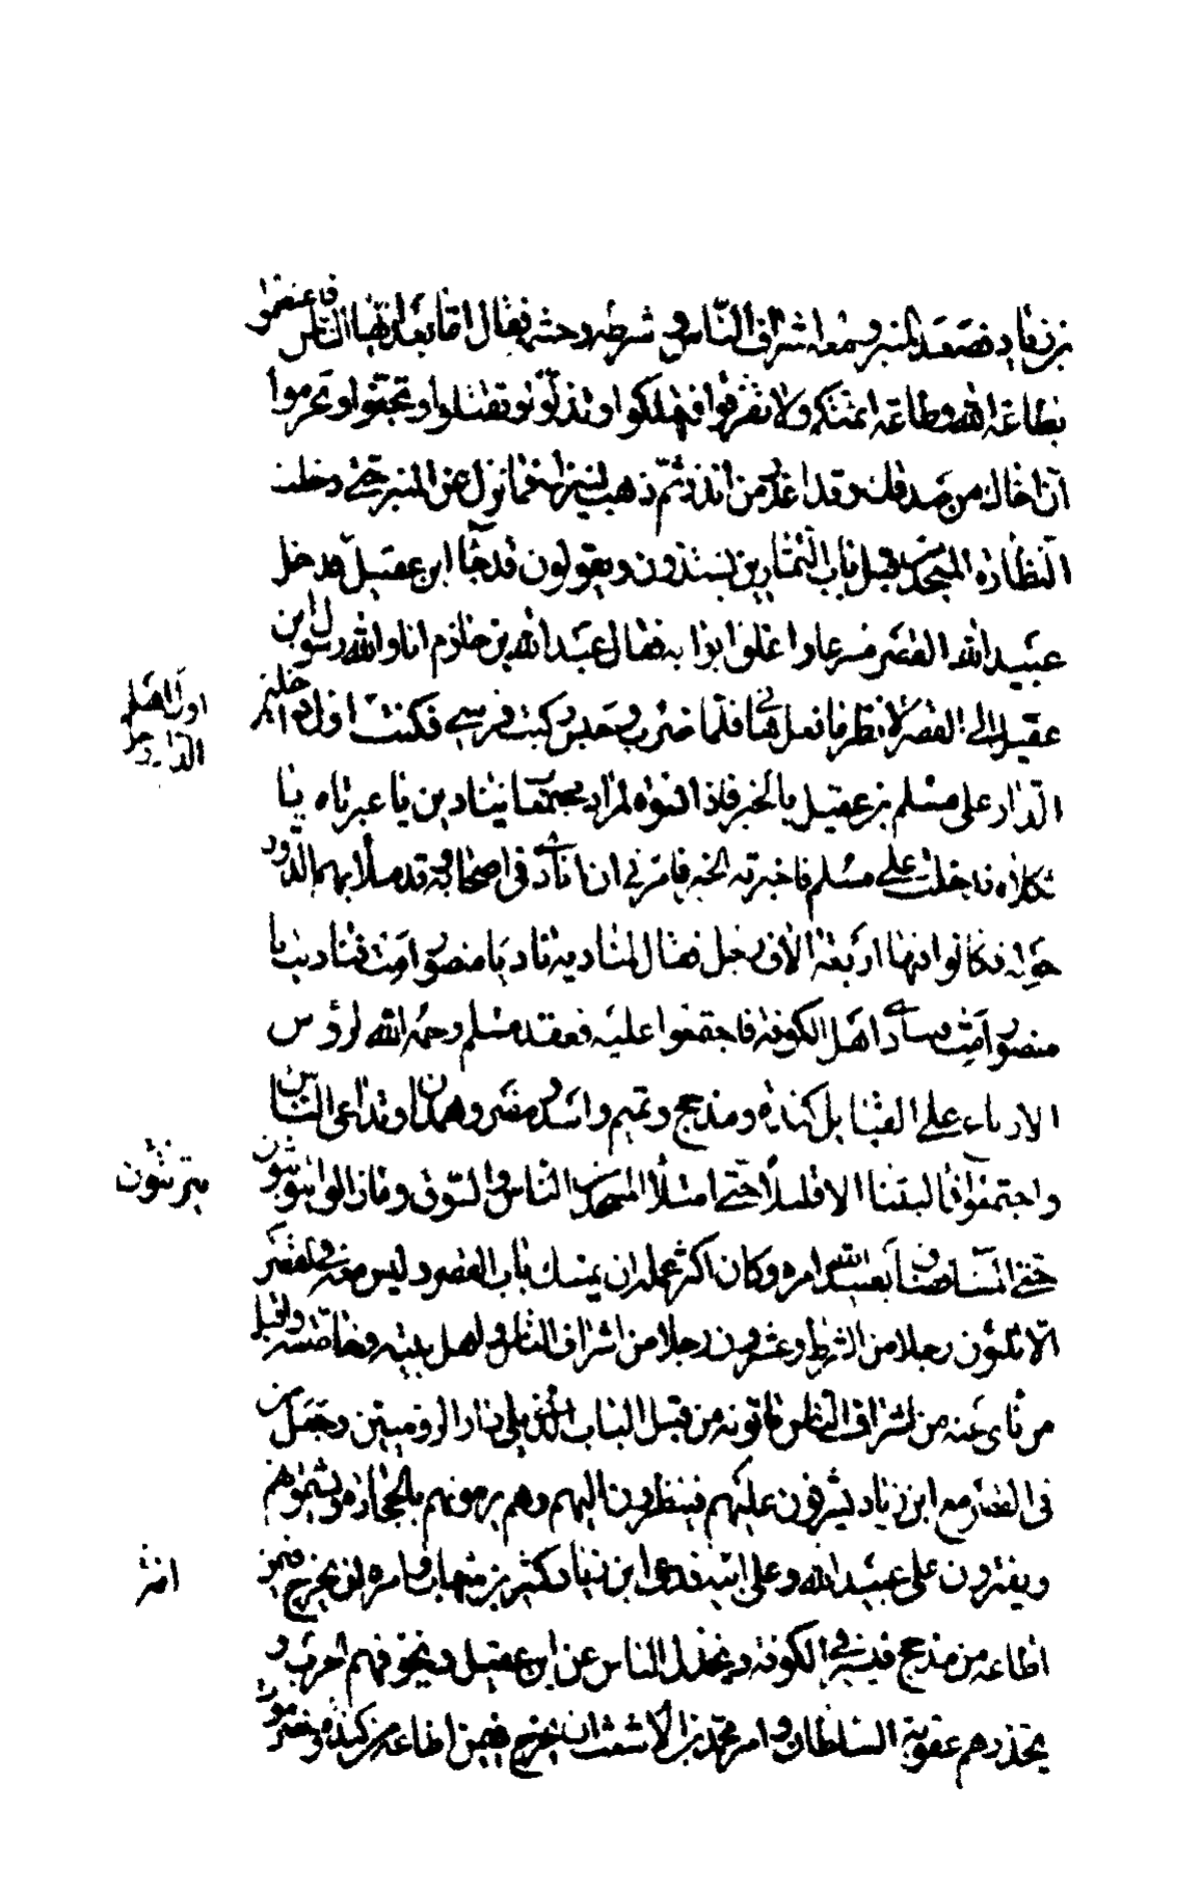 بن زياد فصعد المنبر ومعه اشراف الناس وشرطه وحشمه فقال اما بعد ايها الناس فاعتصموا
بطاعة الله وطاعة ائمتكم ولا تفرقوا فتهلكوا وتذلوا وتقتلوا وتجفوا وتحرموا
ان اخاك من صدقك وقد اعذر من انذر ثم ذهب لينزل فما نزل عن المنبر حتى دخلت
النظارة المسجد من قبل باب التمارين يشتدون ويقولون قد جاء ابن عقيل فدخل
عبيد الله القصر مسرعا واغلق ابوابه فقال عبد الله بن حازم انا والله رسول ابن
عقيل الى القصر لانظر ما فعل هاني فلما ضرب وحبس ركبت فرسي فكنت اول داخل
اول اهل
الدار دخل
الدار على مسلم بن عقيل بالخبر فاذا نسوة لمراد مجتمعات ينادين يا عبرتاه يا
ثكلاه فدخلت على مسلم فاخبرته الخبر فامرني ان انادي في اصحابه وقد ملأ بهم الدور
حوله فكانوا فيها اربعة الاف رجل فقال لمناديه ناد يا منصور امت فناديت يا
منصور امت فتنادى اهل الكوفة فاجتمعوا عليه فعقد مسلم رحمه الله لرؤس
الارباع على القبايل كندة ومذحج وتميم واسد ومضر وهمدان وتداعى الناس
واجتمعوا فما لبثنا الا قليلا حتى امتلأ المسجد من الناس والسوق وما زالوا يتوثبون
يتوثبون
حتى المساء فضاق بعبيد الله امره وكان اكثر عمله ان يمسك باب القصر وليس معه في القصر
الا ثلثون رجلا من الشرط وعشرون رجلا من اشراف الناس واهل بيته وخاصته واقبل
من نأى عنه من اشراف الناس ياتونه من قبل الباب الذي يلي دار الروميين وجعل من
في القصر مع ابن زياد يشرفون عليهم فينظرون اليهم وهم يرمونهم بالحجارة ويشتمونهم
ويفترون على عبيد الله وعلى ابيه فدعا ابن زياد كثير بن شهاب وامره ان يخرج فيمن
اطاعه من مذحج فيسير في الكوفة ويخذل الناس عن ابن عقيل ويخوفهم الحرب و
يحذرهم عقوبة السلطان وامر محمد بن الاشعث ان يخرج فيمن اطاعه من كندة وحضرموت